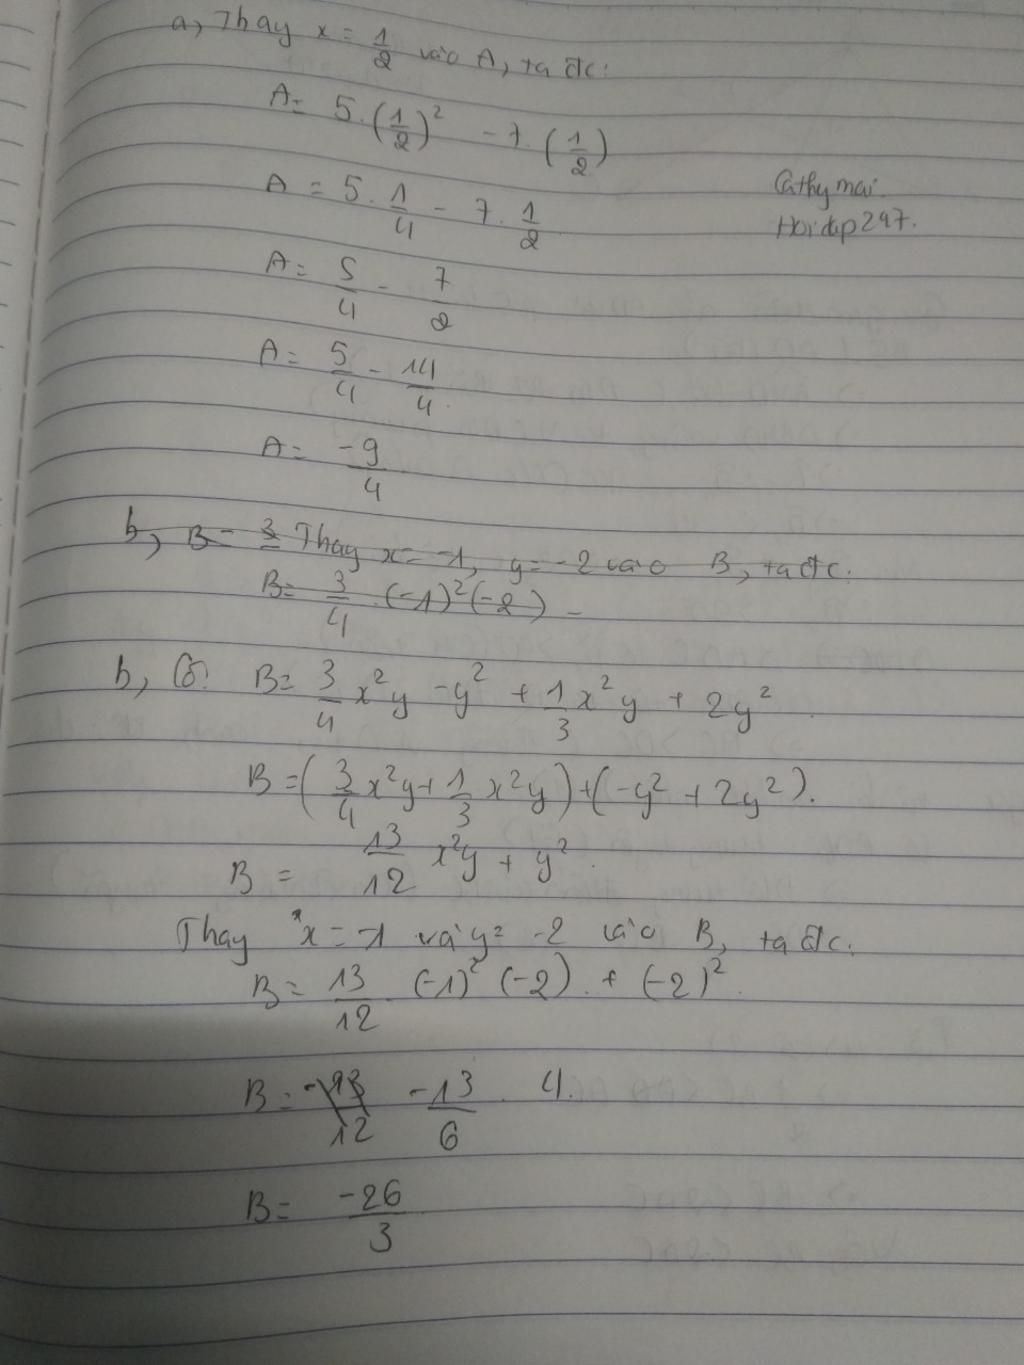 a, Thay x = 1/2 vào A, ta đc:
A = 5.(1/2)² - 7.(1/2)
A = 5.1/4 - 7.1/2
Cathymai.
Hoidap247.
A = 5/4 - 7/2
A = 5/4 - 14/4
A = -9/4
b, B = 3 Thay x = -1, y = -2 vào B, ta đc:
B = 3/4.(-1)²(-2) -
b, Có: B = 3/4x²y - y² + 1/3x²y + 2y²
B = (3/4x²y + 1/3x²y) + (-y² + 2y²).
B = 13/12x²y + y².
Thay x = -1 và y = -2 vào B, ta đc:
B = 13/12 (-1)² (-2) . + (-2)²
B = -13/12 -13/6 . 4.
B = -26/3